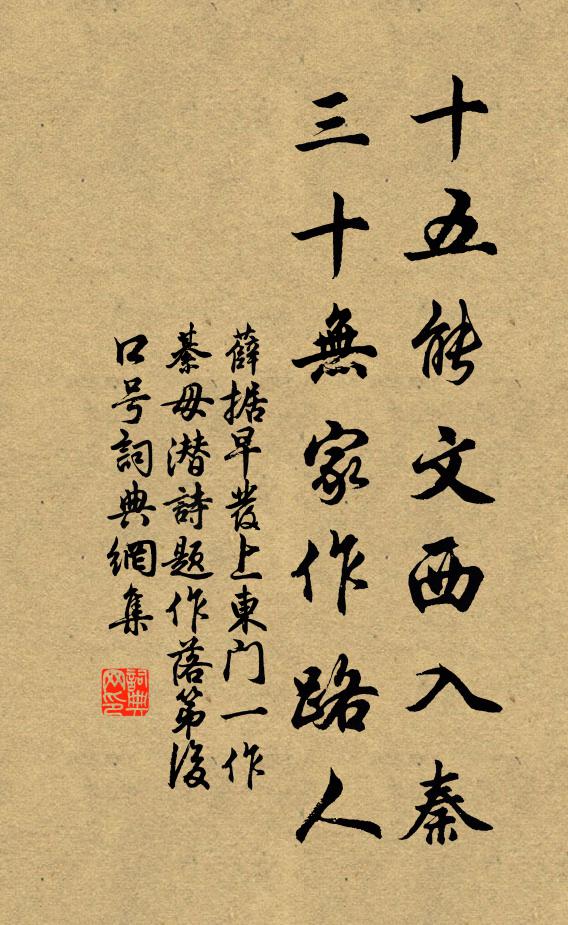 十五能文西入秦
三十無家作路人
薛据早發上東门一作
綦毋潜詩題作落第後
口号詞典網集
詞典网印